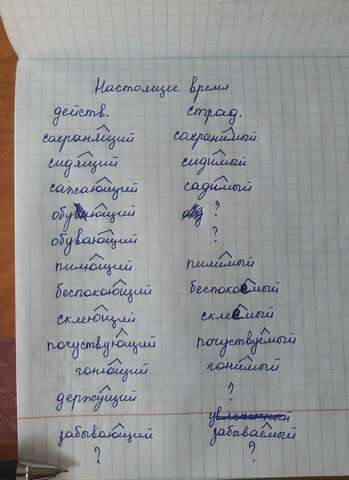 Настоящее время
действ. страд.
сохранящий сохранимый
сидящий сидимый
сажающий садимый
обувающий ?
обувающий ?
пилющий пилимый
беспокоющий беспокоемый
склеющий склеемый
почуствующий почуствуемый
гонющий гонимый
держущий ?
увлеченный
забывающий забываемый
? ?